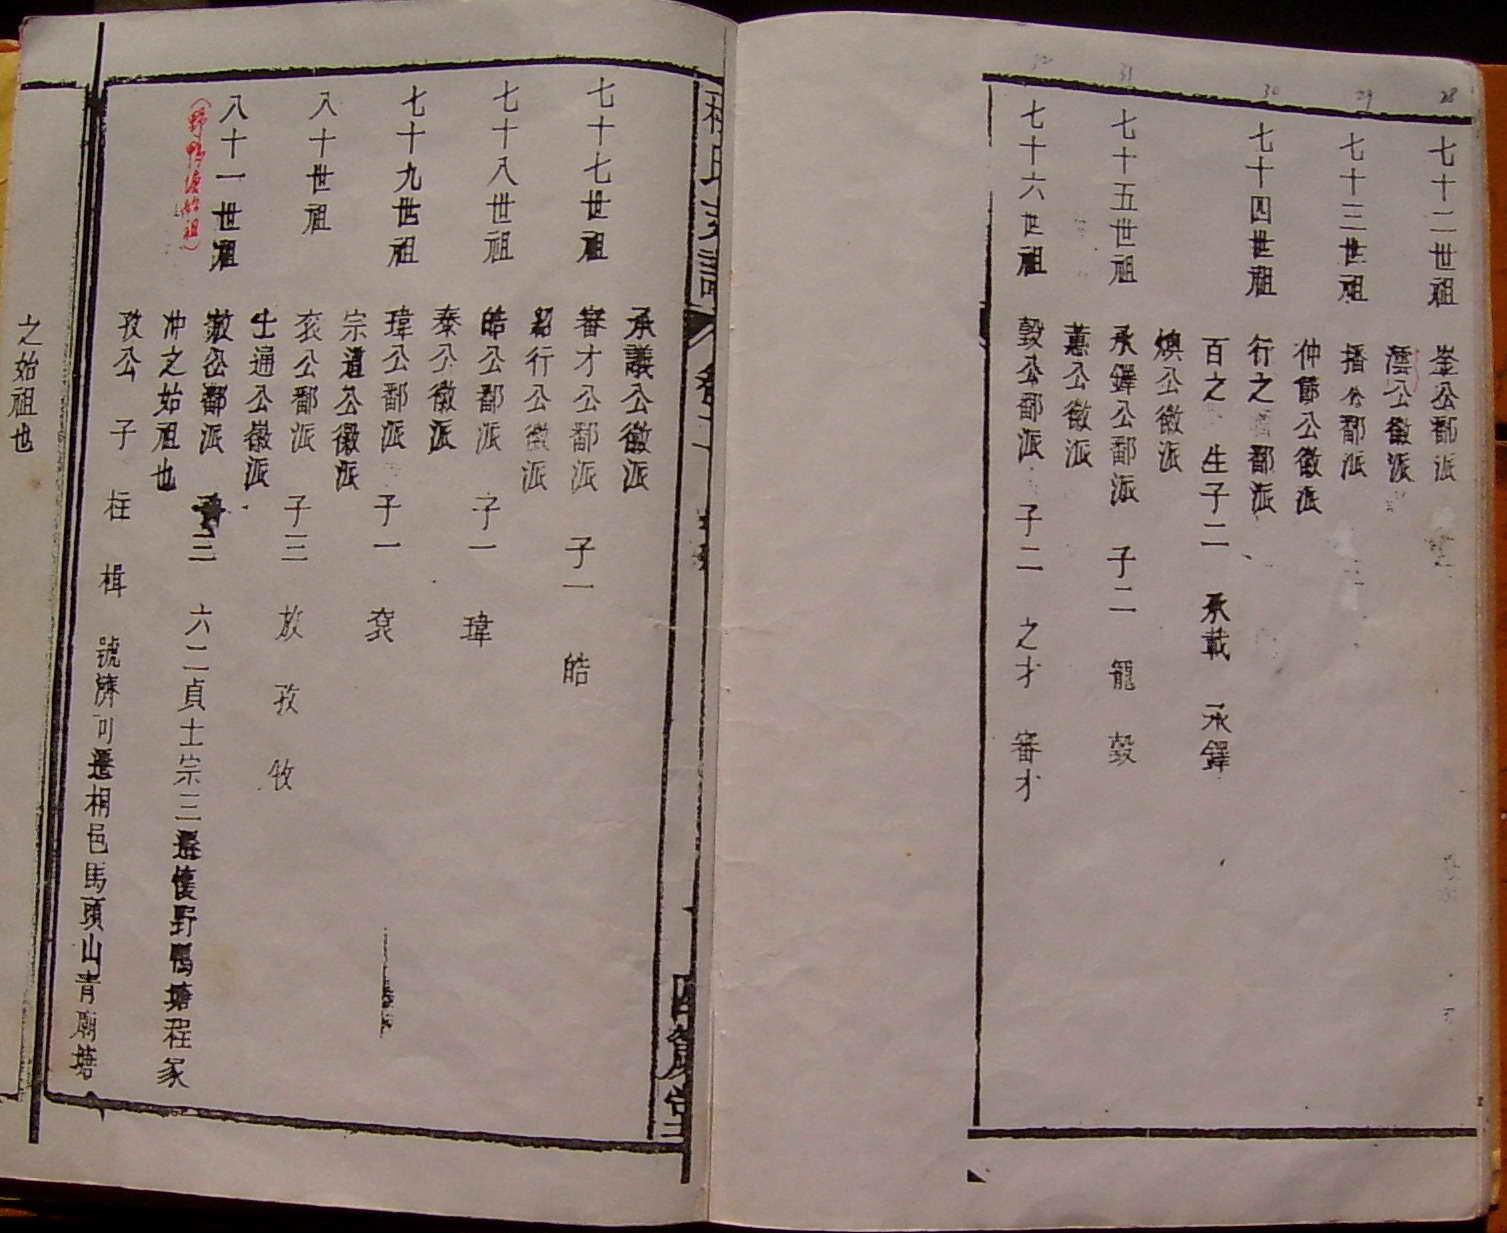 28
七十二世祖 崟公鄱派
澐公徽派
29
七十三世祖 播公鄱派
仲節公徽派
30
七十四世祖 行之 鄱派
百之 生子二 承載 承鐸
燠公徽派
31
七十五世祖 承鐸公鄱派 子二 龍 㲄
蕙公徽派
32
七十六世祖 㲄公鄱派 子二 之才 審才
程氏支譜 卷二 四箴堂
承議公徽派
七十七世祖 審才公鄱派 子一 皓
紹行公徽派
七十八世祖 皓公鄱派 子一 瑋
泰公徽派
七十九世祖 瑋公鄱派 子一 袞
宗道公徽派
八十世祖 袞公鄱派 子三 放 孜 攸
士通公徽派
八十一世祖 放公鄱派 子三 六二貞士宗三遷懷野鴨塘程家
(野鴨塘始祖)
冲之始祖也
孜公 子 柱 楫 號濟可遷桐邑馬頭山青廟塘
之始祖也